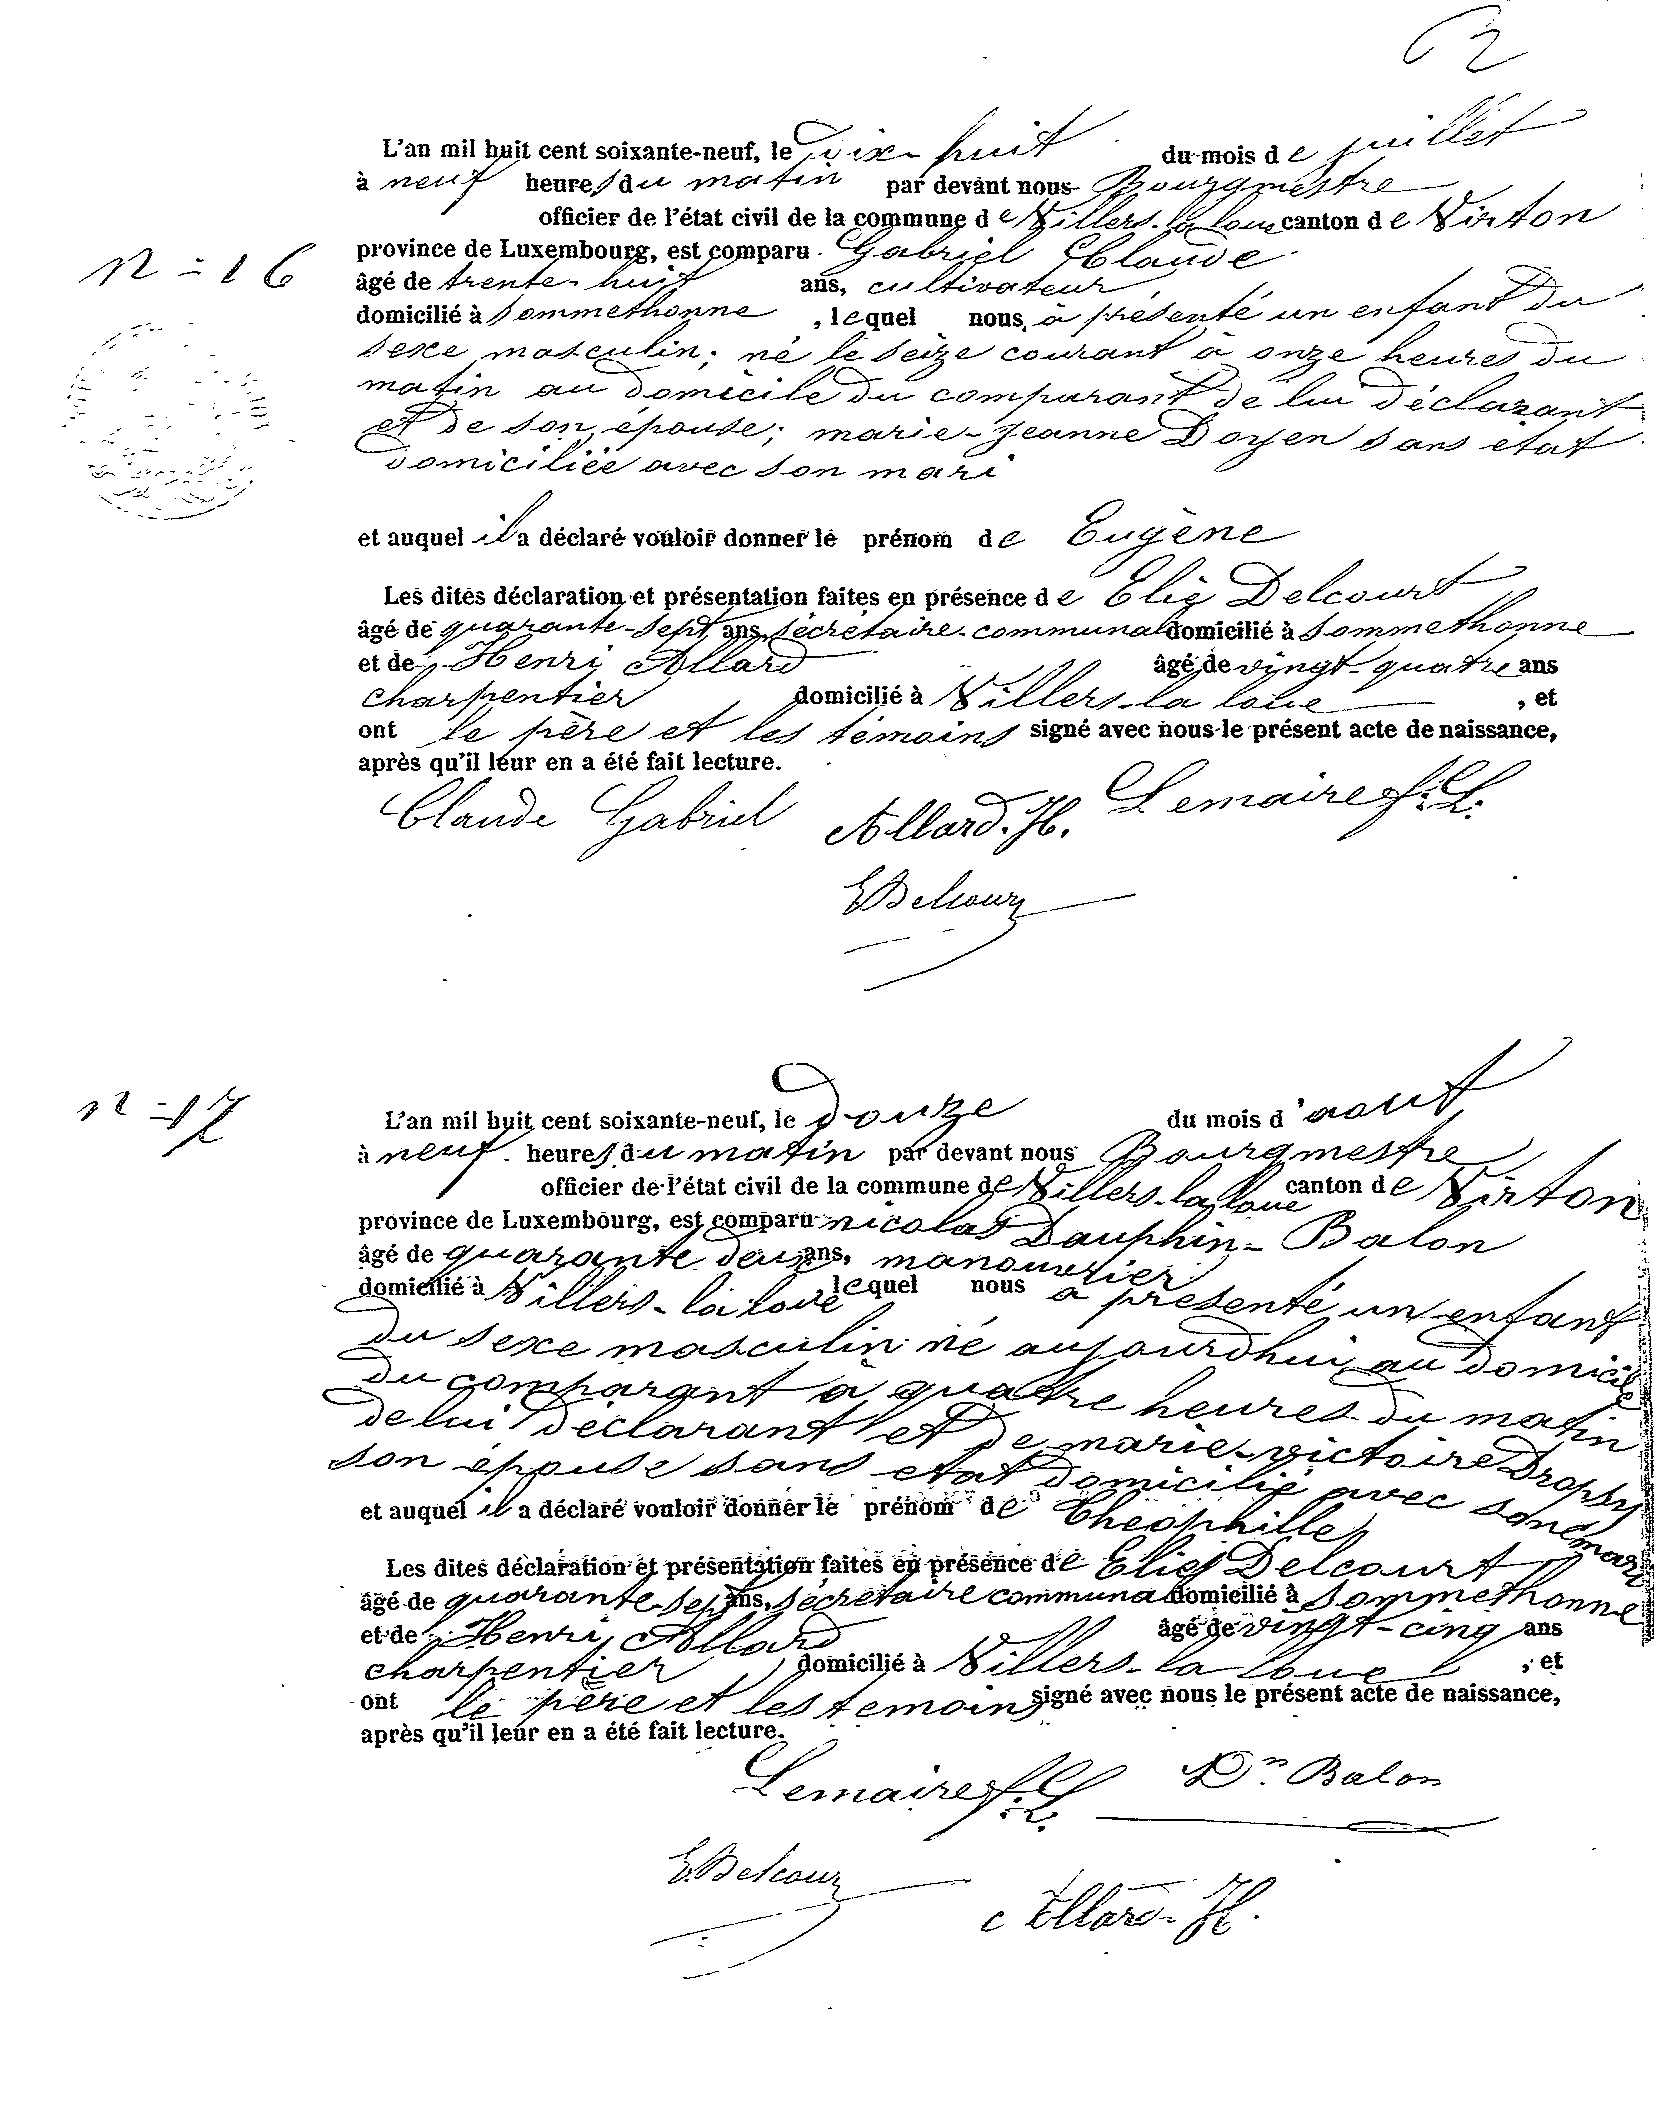 L'an mil huit cent soixante-neuf, le dix-huit du mois de juillet
à neuf heures du matin par devant nous Bourgmestre
officier de l'état civil de la commune de Villers-la loue canton de Virton
province de Luxembourg, est comparu Gabriel Claude
n = 16
âgé de trente-huit ans, cultivateur
domicilié à Sommethonne, lequel nous à présenté un enfant du
sexe masculin; né le seize courant à onze heures du
matin au domicile du comparant de lui déclarant
et de son épouse; marie-Jeanne Doyen sans état
domiciliée avec son mari
et auquel il a déclaré vouloir donner le prénom de Eugène
Les dites déclaration et présentation faites en présence de Elie Delcourt
âgé de quarante-sept ans, sécrétaire-communal domicilié à Sommethonne
et de Henri Allard âgé de vingt-quatre ans
charpentier domicilié à Villers-la loue, et
ont le père et les témoins signé avec nous le présent acte de naissance,
après qu'il leur en a été fait lecture.
Claude Gabriel Allard. H. Lemaire f: L:
E Delcour
n = 17
L'an mil huit cent soixante-neuf, le douze du mois d'aout
à neuf heures du matin par devant nous Bourgmestre
officier de l'état civil de la commune de Villers-la loue canton de Virton
province de Luxembourg, est comparu nicolas Dauphin-Balon
âgé de quarante deux ans, manouvrier
domicilié à Villers-la loue lequel nous a présenté un enfant
du sexe masculin né aujourdhui au domicile
du comparant à quatre heures du matin
de lui déclarant et de marie-victoire Dropsy
son épouse sans etat domicilié avec son mari
et auquel il a déclaré vouloir donner le prénom de Théophille
Les dites déclaration et présentation faites en présence de Elie Delcourt
âgé de quarante-sept ans, sécrétaire communal domicilié à Sommethonne
et de Henri Allard âgé de vingt-cinq ans
charpentier domicilié à Villers-la loue, et
ont le père et les temoins signé avec nous le présent acte de naissance,
après qu'il leur en a été fait lecture.
Lemaire f: L. Dn. Balon
E. Delcour
Allard-H.